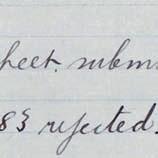 sheet. subm
83 rejected.